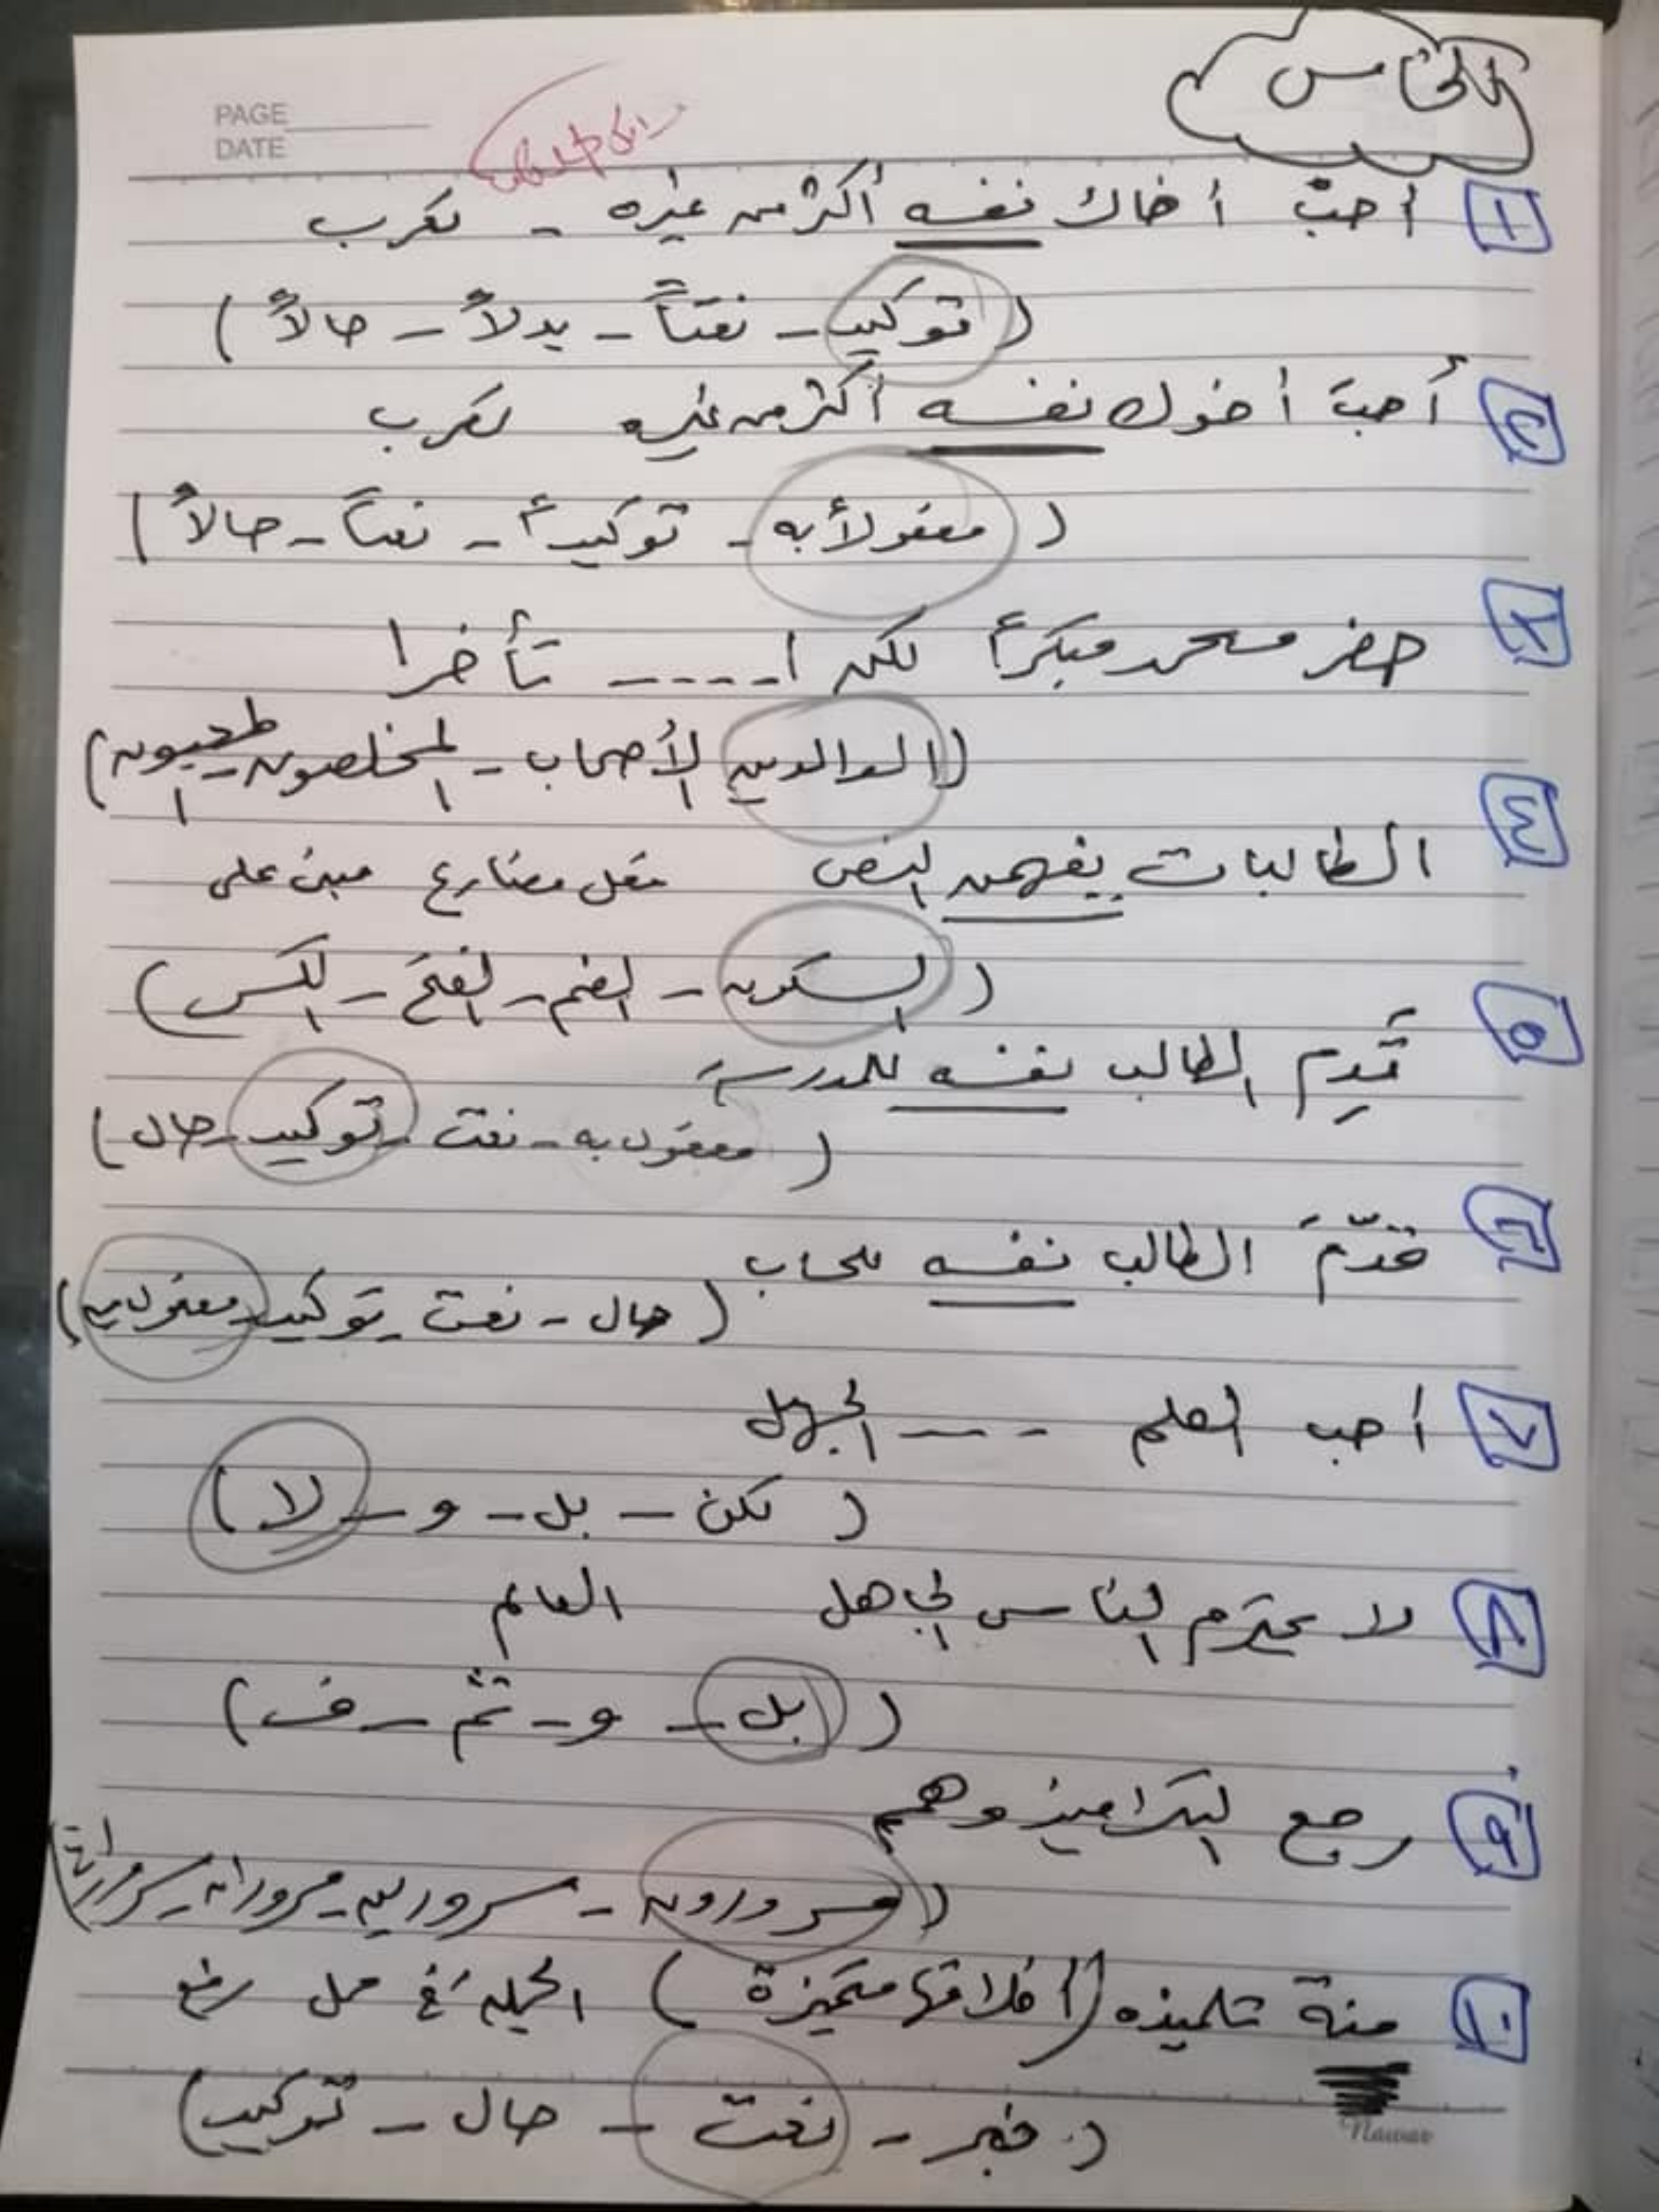 الخامس
PAGE
DATE
١ أحبّ أخاك نفسه أكثر من غيره - تعرب
(توكيد - نعتاً - بدلاً - حالاً)
٢ أحبّ أخوك نفسه أكثر من غيره تعرب
(مفعولاً به - توكيداً - نعتاً - حالاً)
حضر محمد مبكراً لكن ا ----- تأخرا
(الوالدين - الأصحاب - المخلصون - )
٤ الطالبات يفهمن النص فعل مضارع مبنى على
(السكون - الضم - الفتح - الكسر)
٥ قَدِم الطالب نفسه للمدرسة
(مفعول به - نعت - توكيد - حال)
٦ قدّمَ الطالب نفسه
(حال - نعت - توكيد - مفعول به)
٧ أحب العلم ---- الجهل
(لكن - بل - و - لا)
٨ لا يحترم الناس الجاهل العالم
(بل - و - ثم - ف)
٩ رجع التلاميذ وهم
(مسرورون - مسرورين - مسروران - )
١٠ منة تلميذه (أخلاقها متميزة) الجملة فى محل رفع
(خبر - نعت - حال - توكيد)
Nawar